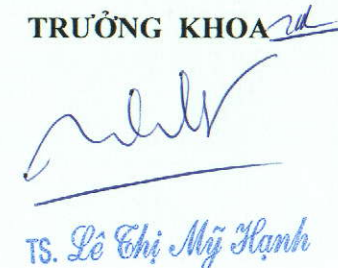 TRƯỞNG KHOA
TS. Lê Thị Mỹ Hạnh